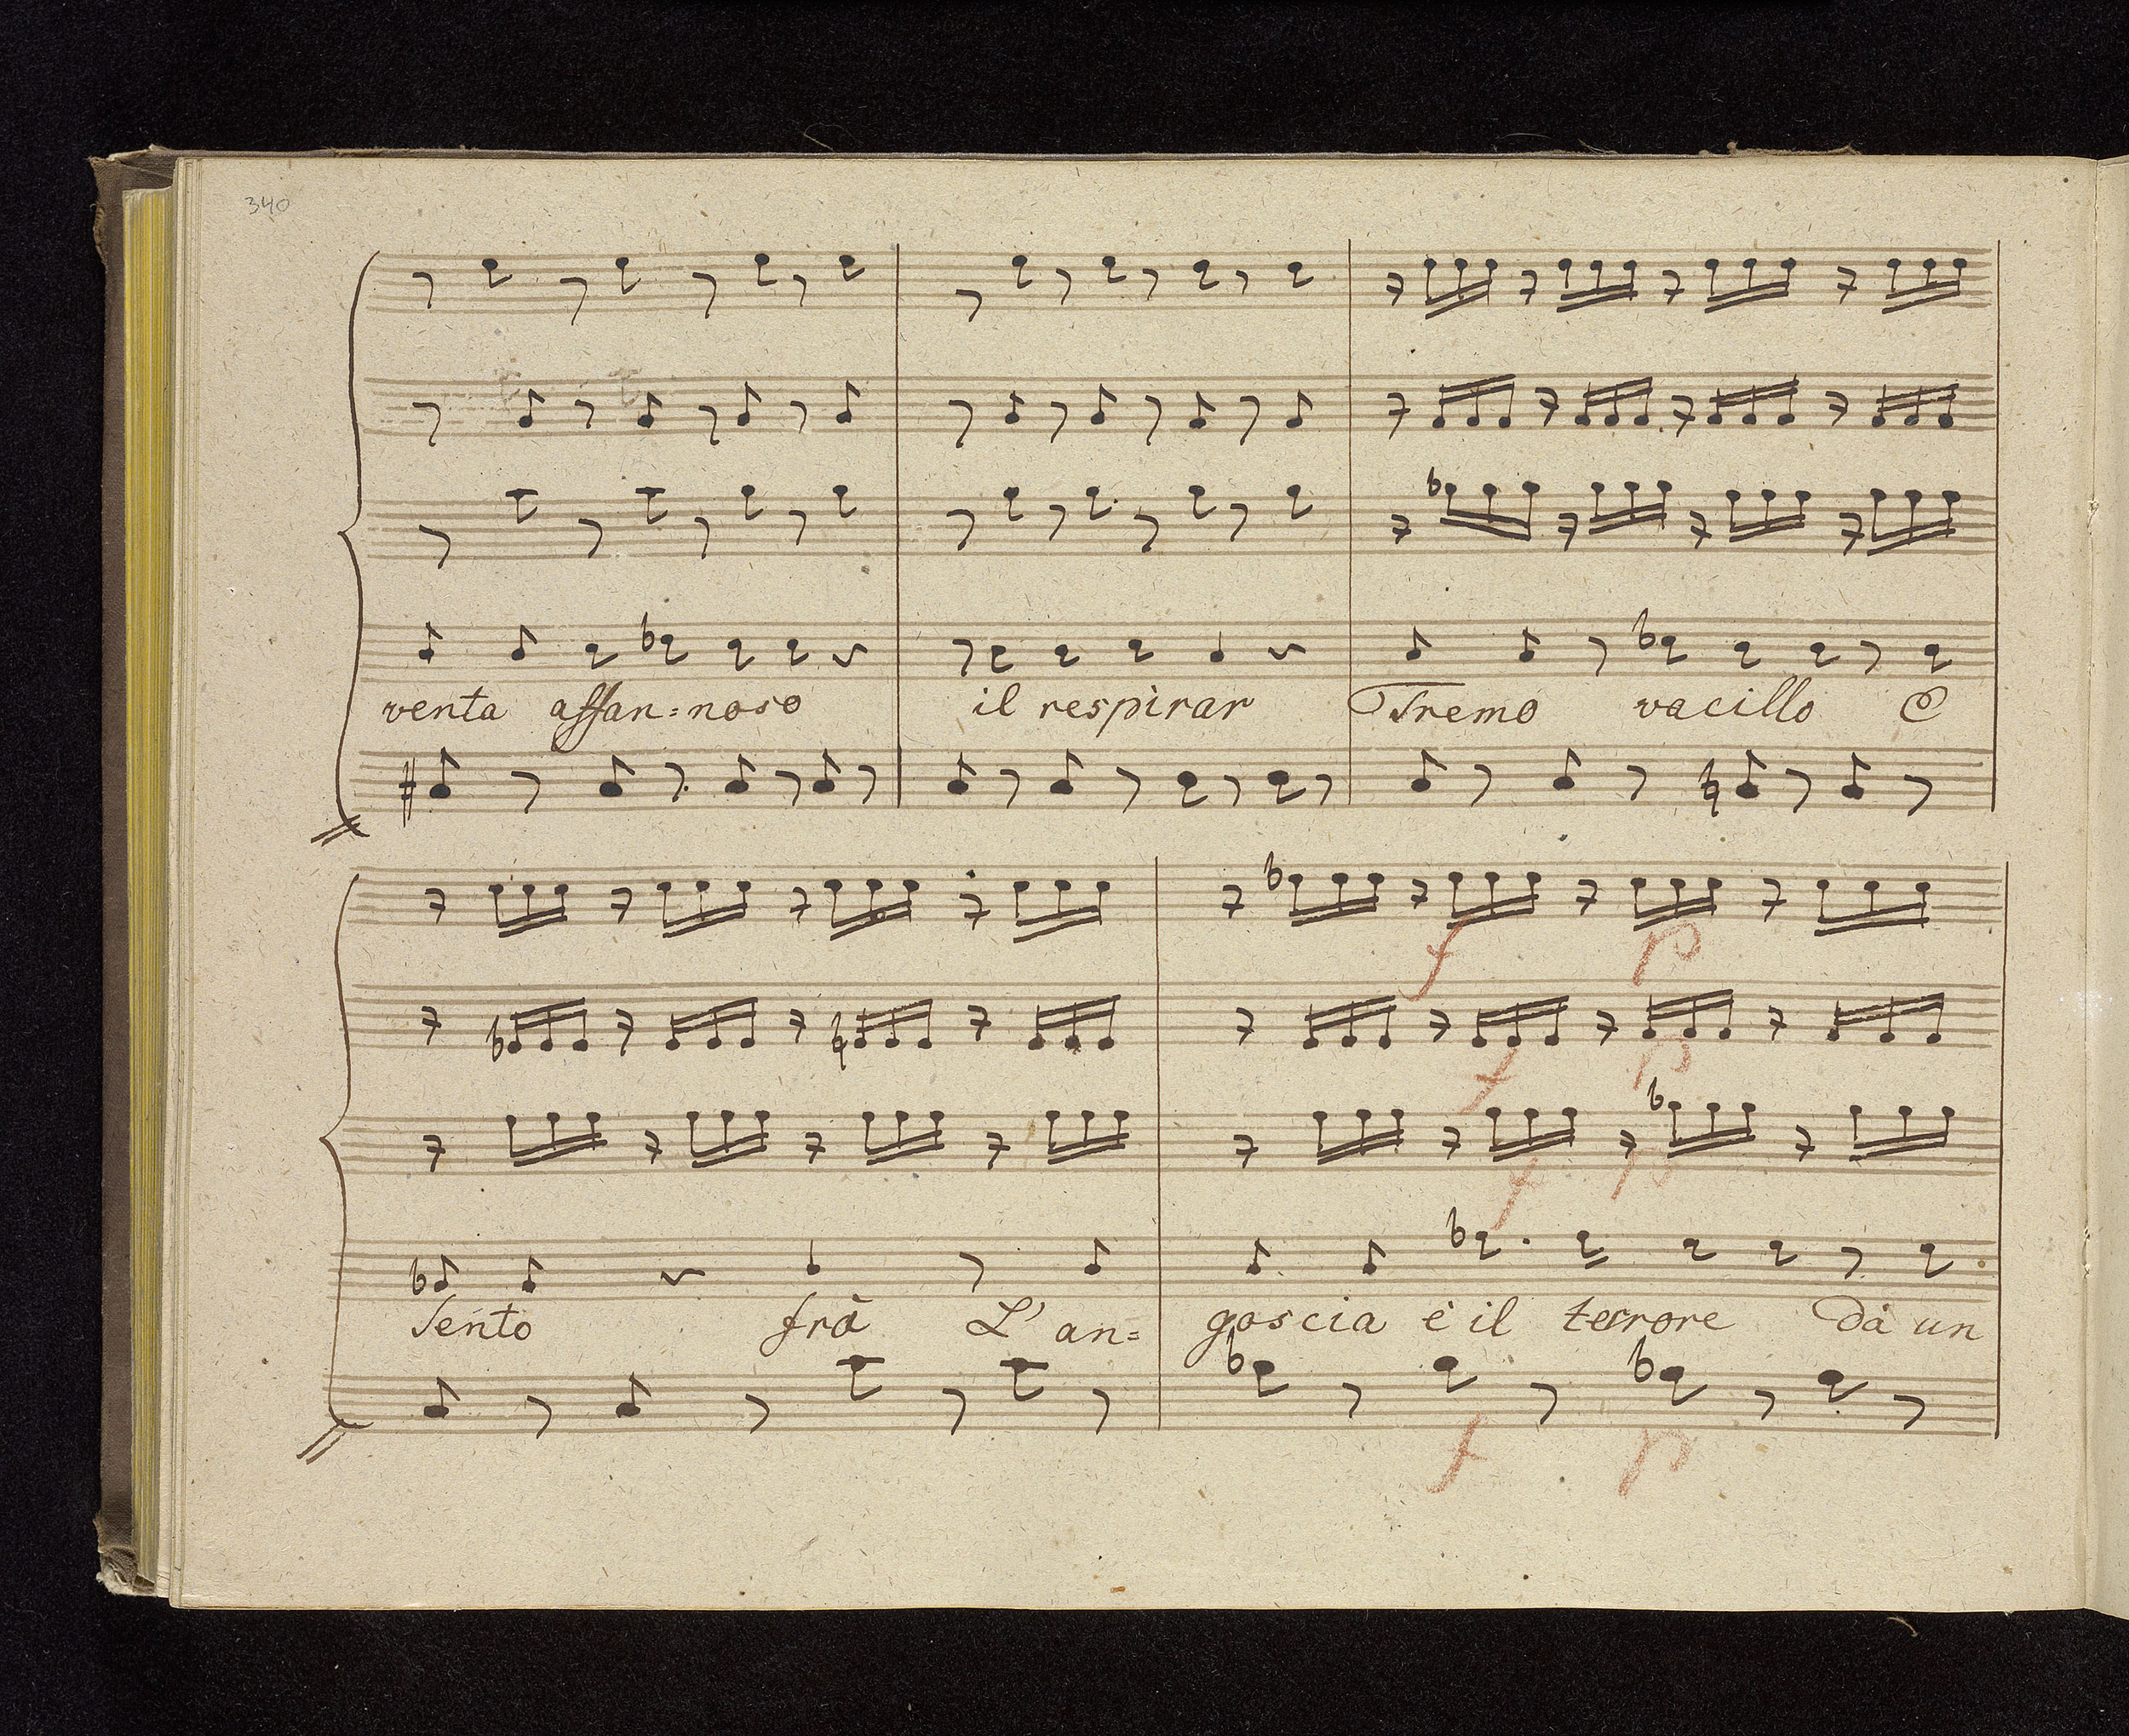 340
venta affan=noso il respirar Tremo vacillo e
Sento frà L' an=
goscia è il terrore da un
f p
f p
f p
f p